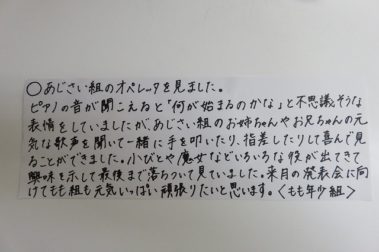 ○あじさい組のオペレッタを見ました。
ピアノの音が聞こえると「何が始まるのかな」と不思議そうな
表情をしていましたが、あじさい組のお姉ちゃんやお兄ちゃんの元
気な歌声を聞いて一緒に手を叩いたり、指差したりして喜んで見
ることができました。小びとや魔女などいろいろな役が出てきて
興味を示して最後まで落ちついて見ていました。来月の発表会に向
けてもも組も元気いっぱい頑張りたいと思います。〈もも年少組〉